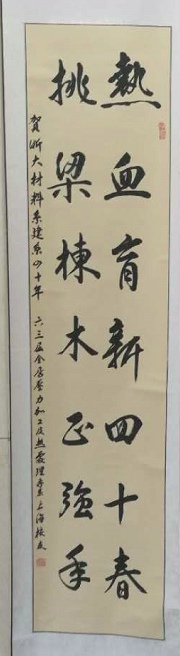 熱血育新四十春
挑梁棟木正強年
賀浙大材料系建系四十年 六三屆金属压力加工及热處理专业上海校友